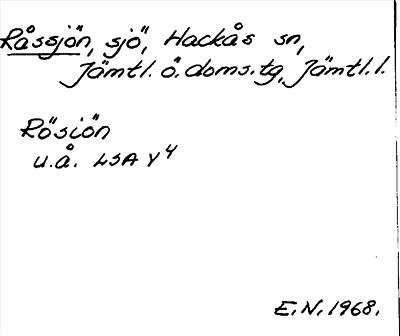 Råssjön, sjö, Hackås sn,
Jämtl. ö. doms. tg, Jämtl. l.
Rösiön
u.å. LSA Y4
E.N. 1968.